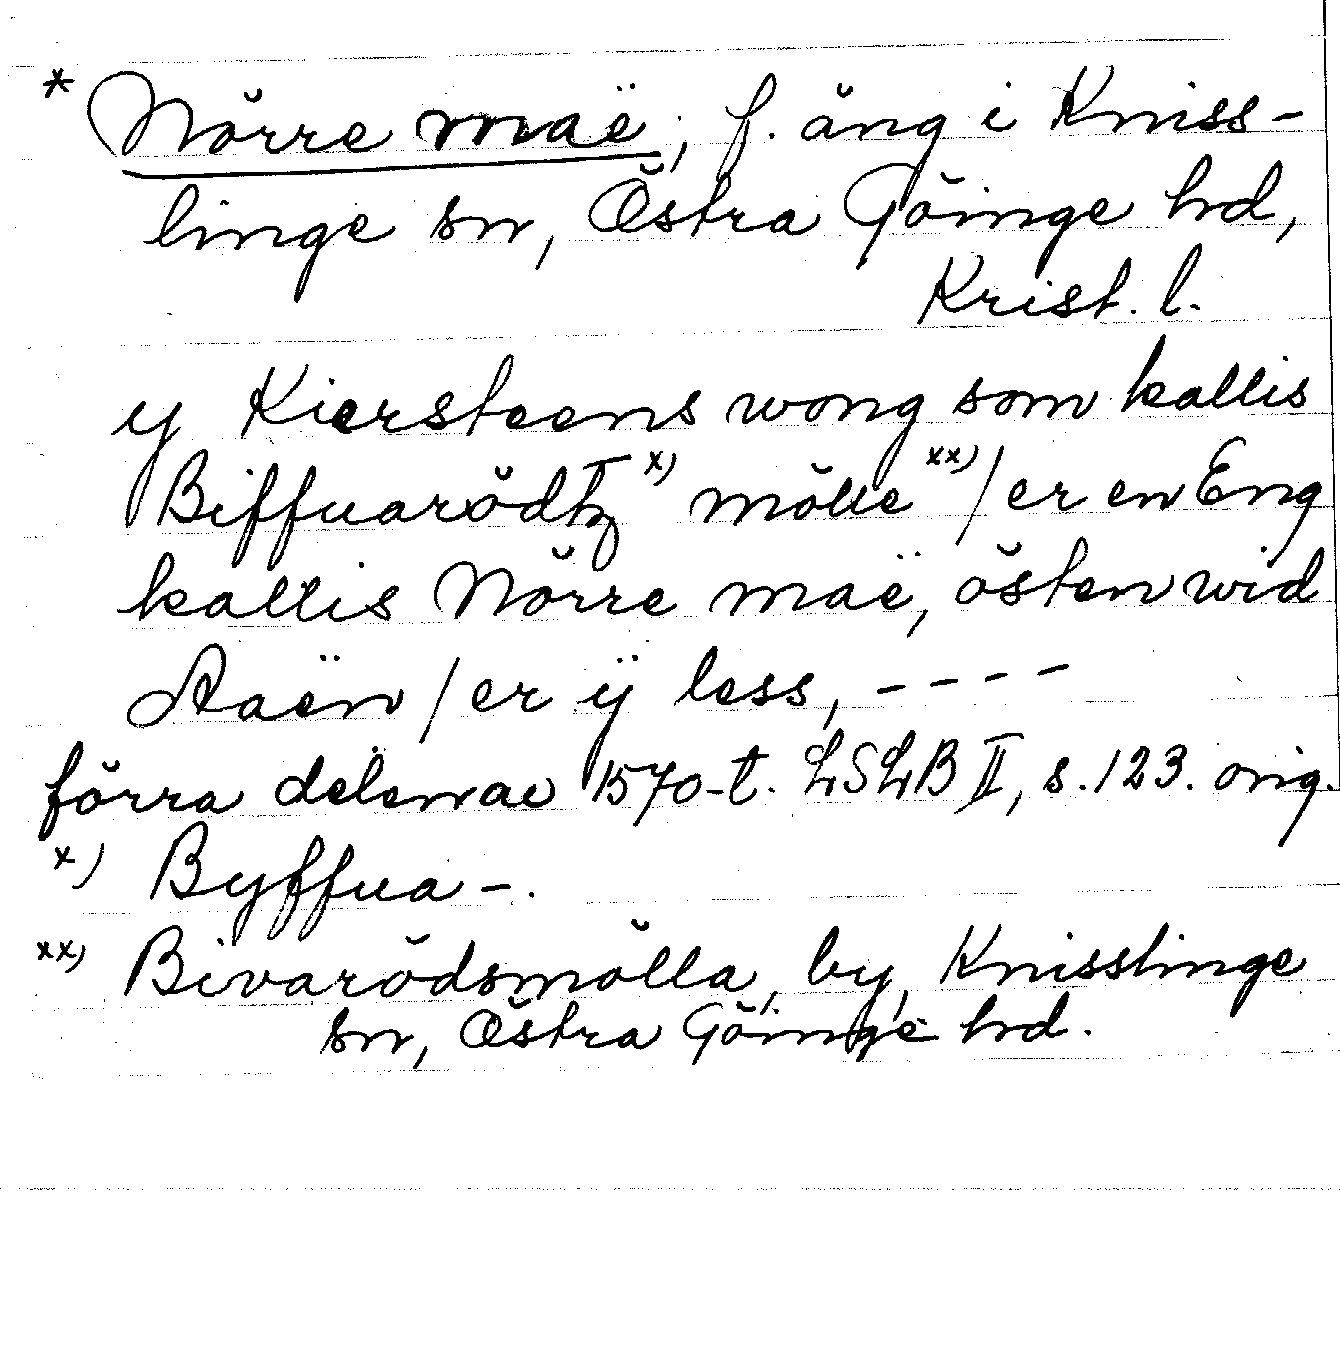 * Nörre maë, f. äng i Kniss-
linge sn, Östra Göinge hd,
Krist. l.
y Kiersteens wong som kallis
Biffuarödtz x) mölle xx) / er en Eng
kallis Nörre maë, östen wid
Aaën / er ÿ less, ----
förra delen av 1570-t. LSLB II, s. 123. orig.
x) Byffua-.
xx) Bivarödsmölla, by, Knisslinge
sn, Östra Göinge hd.